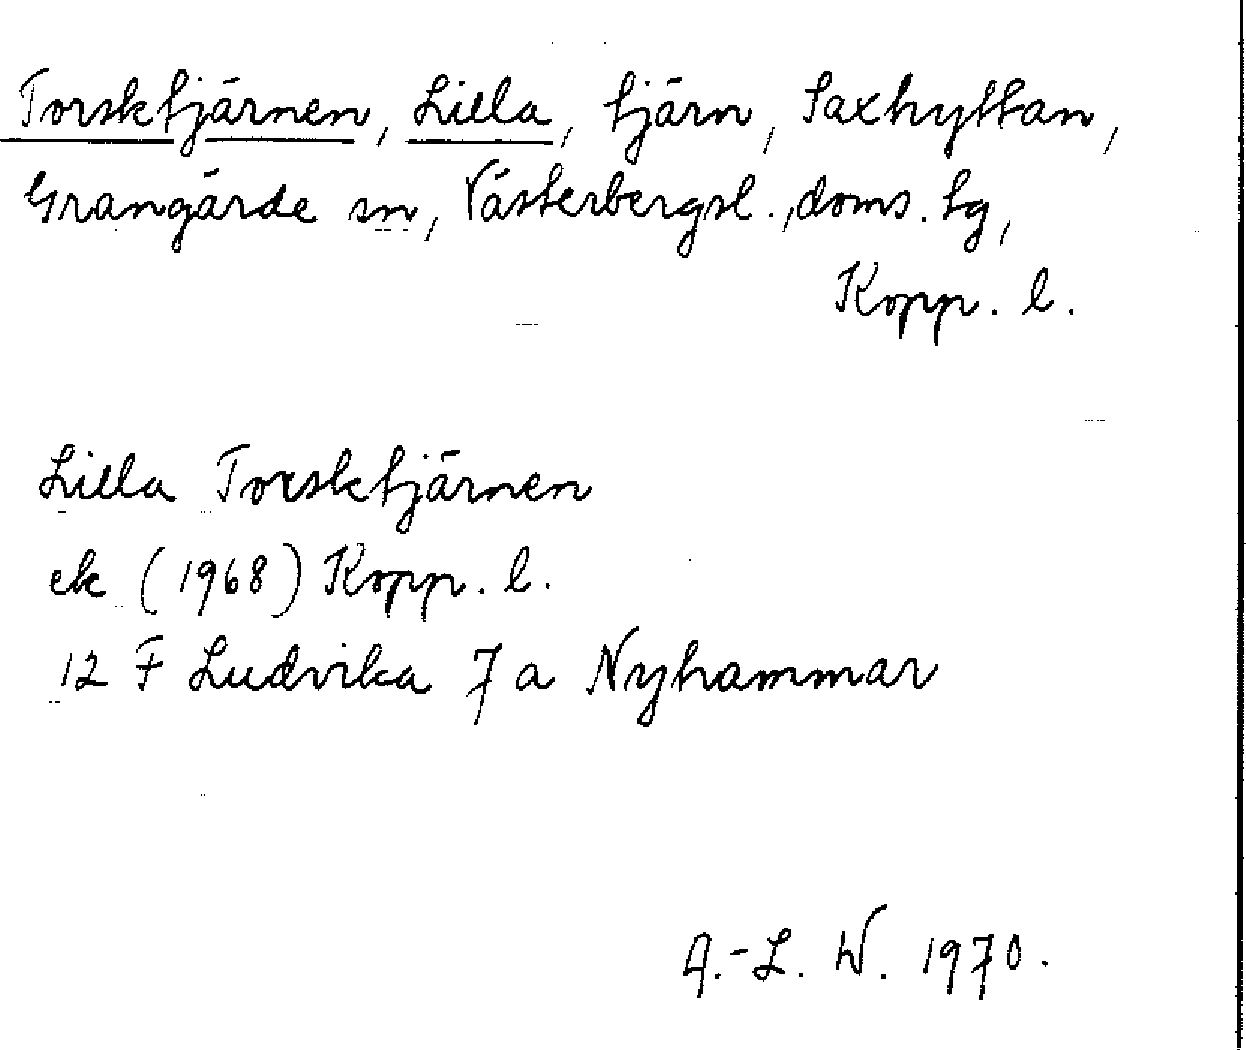 Torsktjärnen, Lilla, tjärn, Saxhyttan,
Grangärde sn, Västerbergsl., doms. tg,
Kopp. l.
Lilla Torsktjärnen
ek (1968) Kopp. l.
12 F Ludvika 7 a Nyhammar
A.-L. W. 1970.